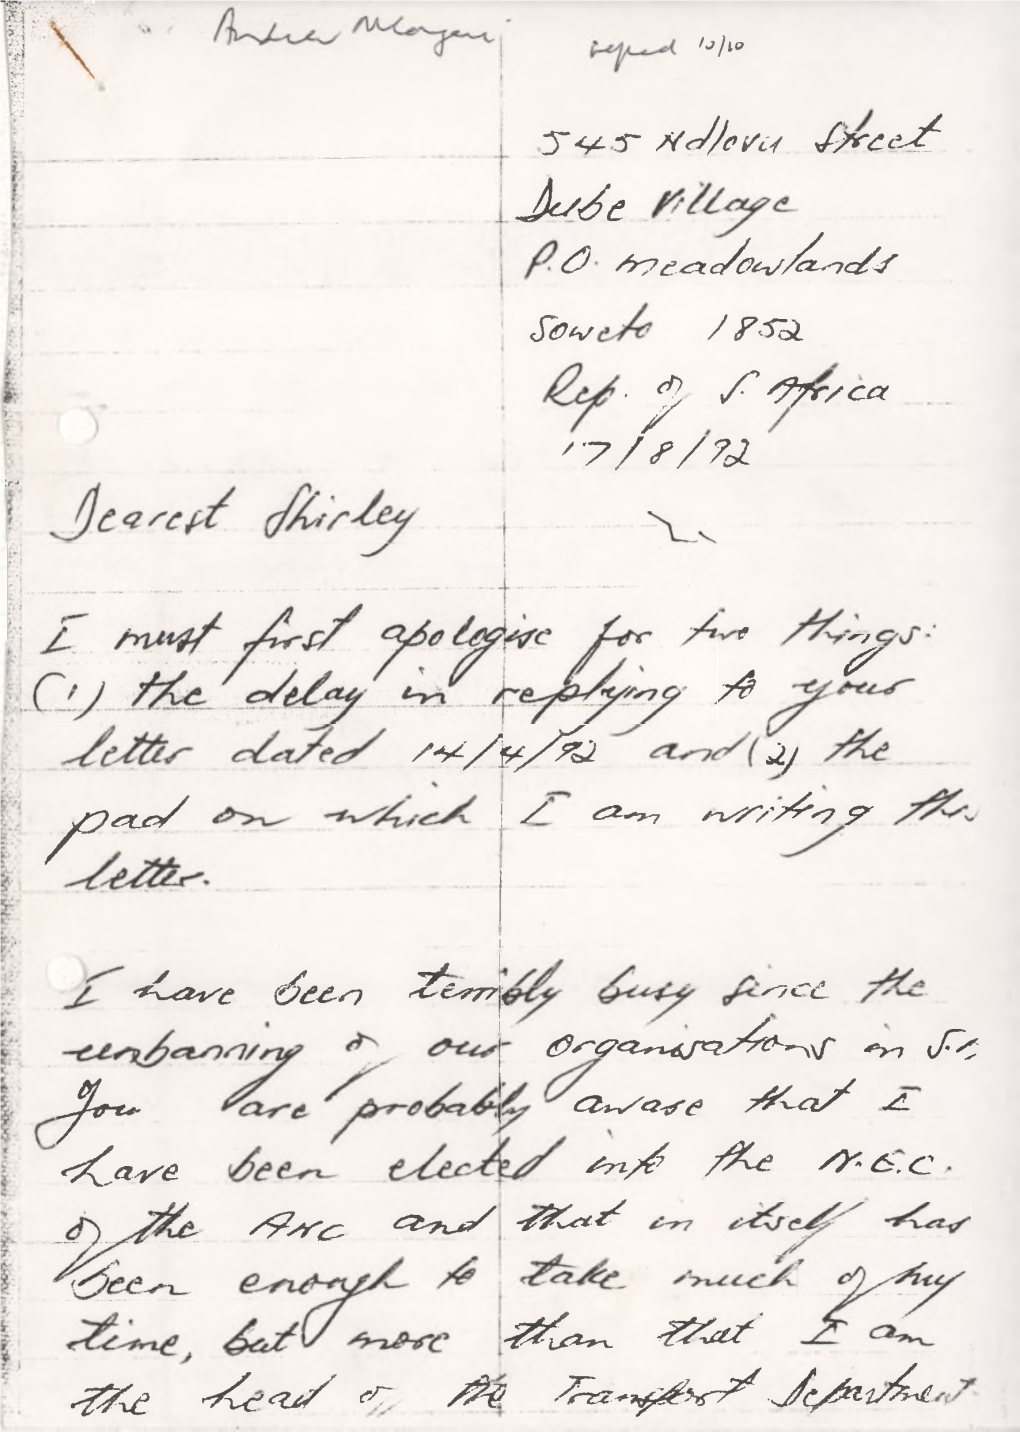 Andrew
10/10
545 Ndlovu Street
Dube Village
P.O. Meadowlands
Soweto 1852
Rep. of S. Africa
17/8/92
Dearest Shirley
I must first apologise for two things:
(1) the delay in replying to your
letter dated 14/4/92 and (2) the
pad on which I am writing this
letter.
I have been terribly busy since the
unbanning of our organisations in S.A.
You are probably aware that I
have been elected into the N.E.C.
of the ANC and that in itself has
been enough to take much of my
time, but more than that I am
the head of the Transport Department